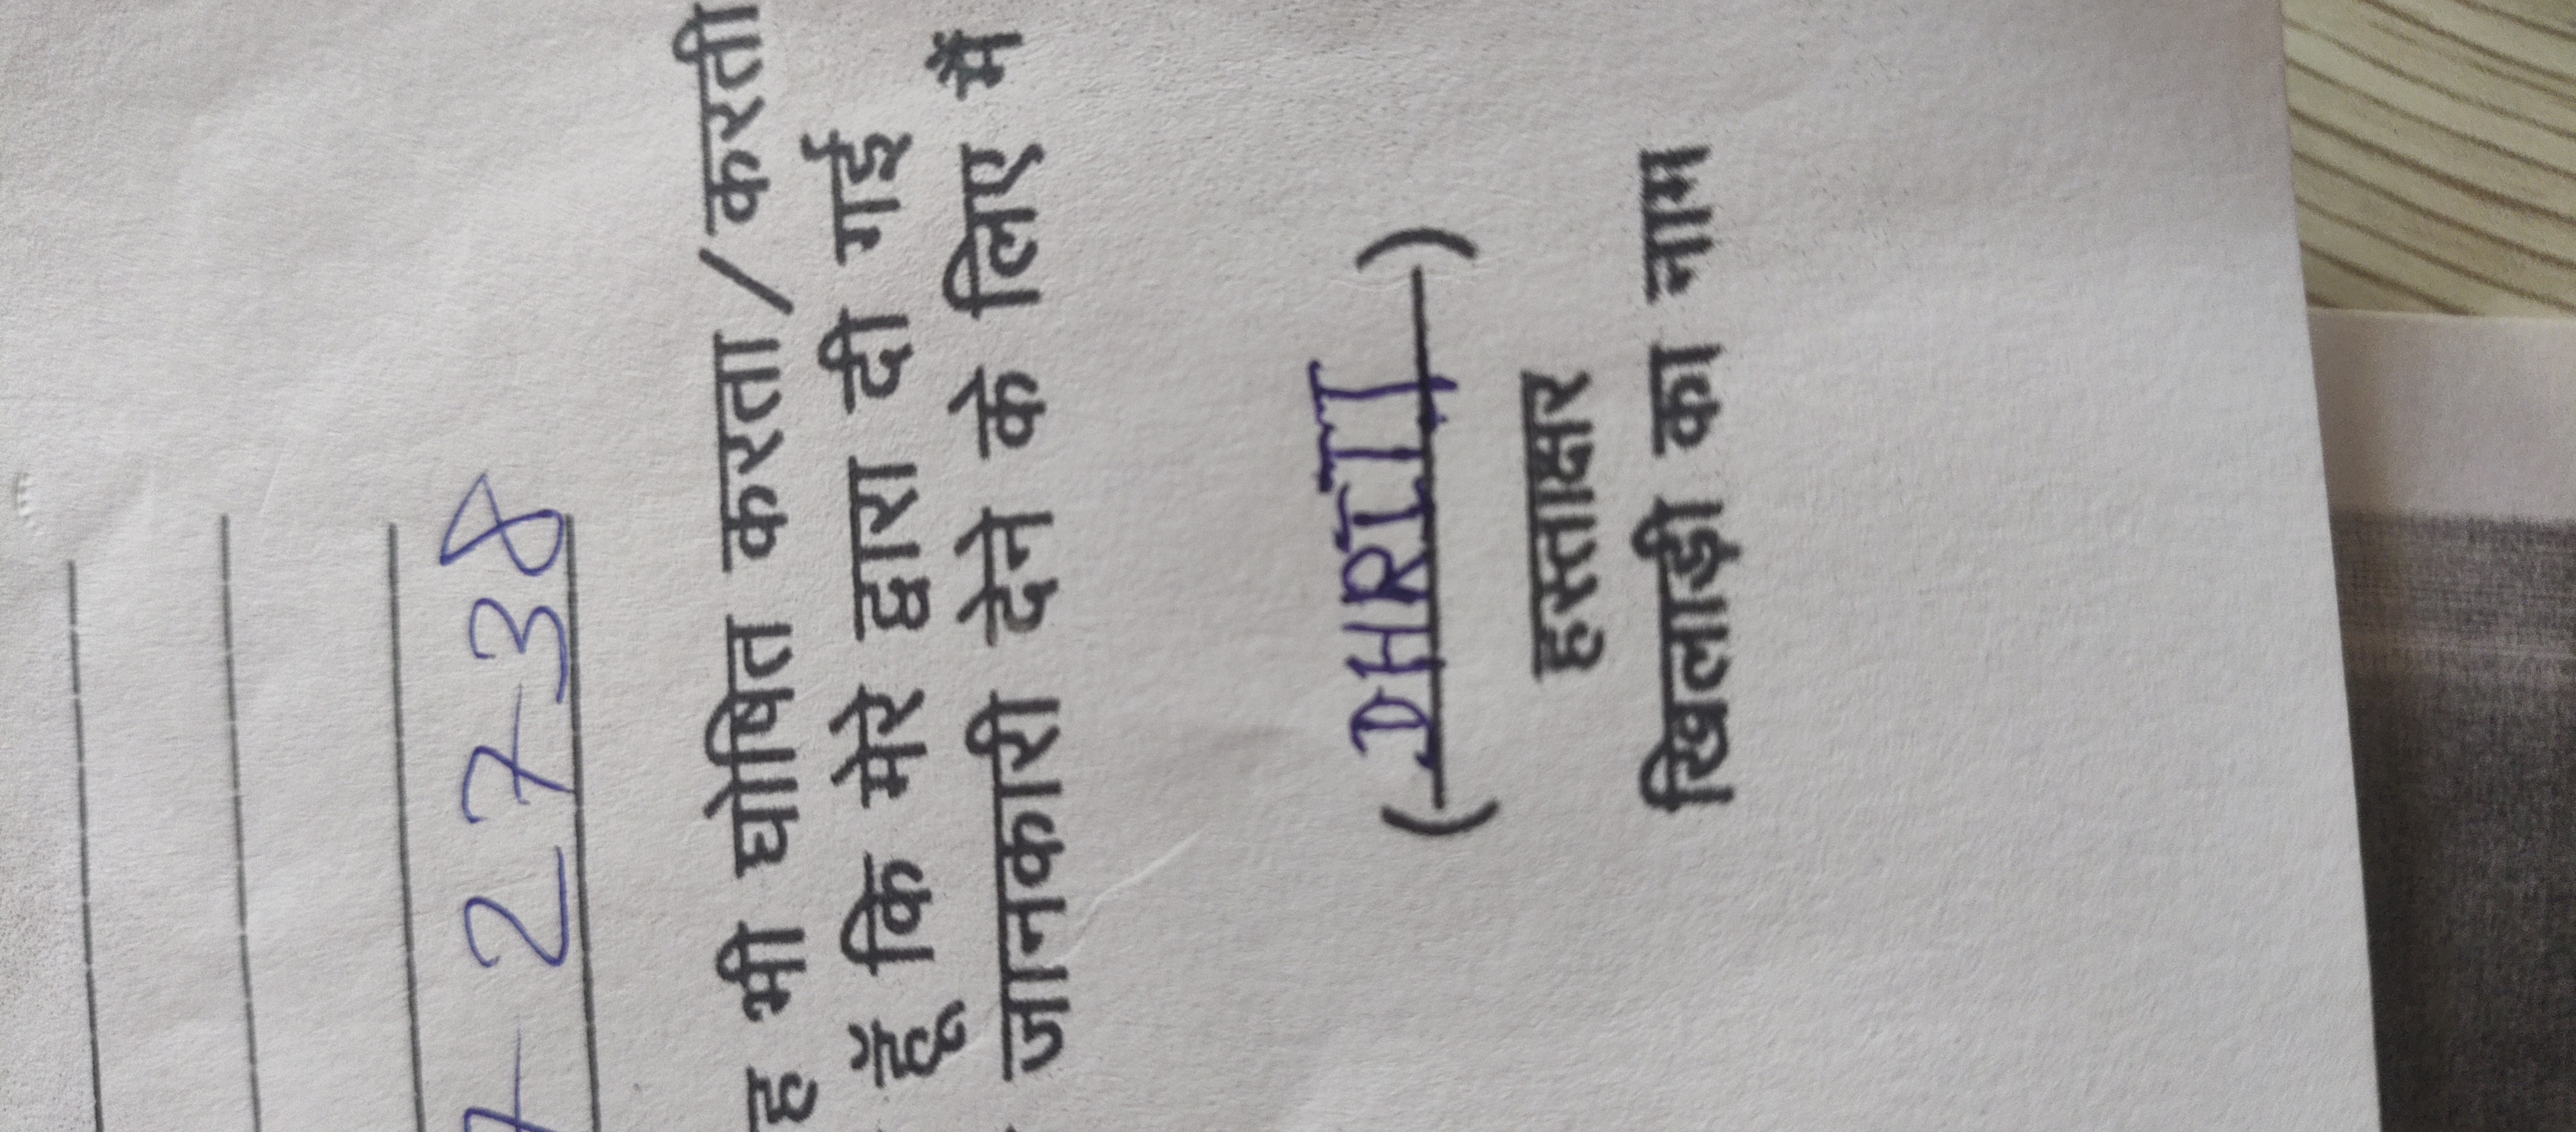 2738
ह भी घोषित करता/करती
हूँ कि मेरे द्वारा दी गई
जानकारी देने के लिए मैं
(DHRITI)
हस्ताक्षर
खिलाड़ी का नाम